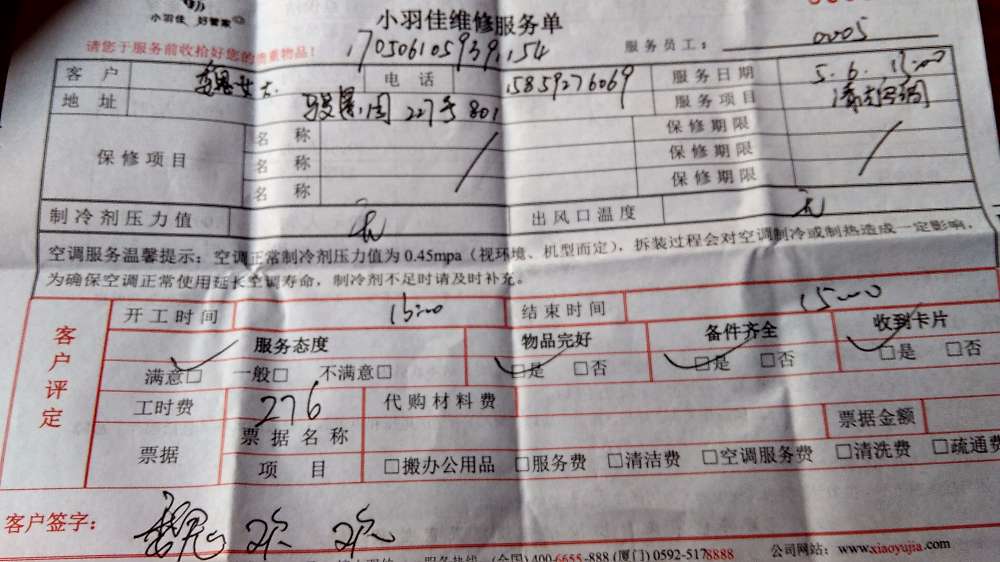 小羽佳 好管家
小羽佳维修服务单
请您于服务前收拾好您的贵重物品！
170506105939154
服务员工： 0005
客户 魏女士 电话 15859276069 服务日期 5.6. 13:00
地址 227号801 服务项目 清洗空调
保修项目 名称 保修期限
名称 保修期限
名称 保修期限
制冷剂压力值 无 出风口温度 无
空调服务温馨提示：空调正常制冷剂压力值为 0.45mpa（视环境、机型而定），拆装过程会对空调制冷或制热造成一定影响，
为确保空调正常使用延长空调寿命，制冷剂不足时请及时补充。
客户评定
开工时间 13:00 结束时间 15:00
服务态度 物品完好 备件齐全 收到卡片
满意□ 一般□ 不满意□ □是 □否 □是 □否 □是 □否
工时费 276 代购材料费
票据 票据名称 票据金额
项目 □搬办公用品 □服务费 □清洁费 □空调服务费 □清洗费 □疏通费
客户签字：
服务热线 (全国) 400-6655-888 (厦门) 0592-5178888 公司网站：www.xiaoyujia.com